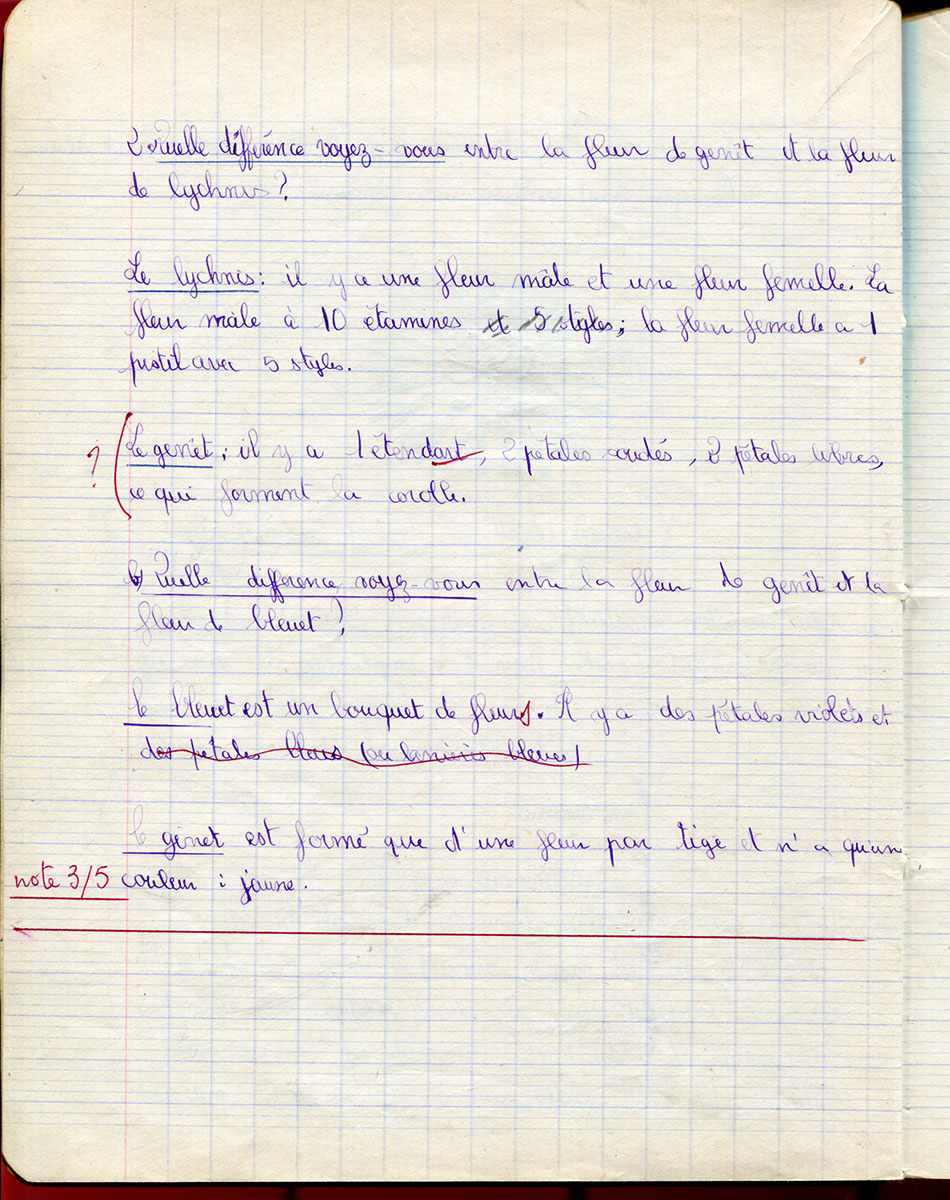 2 Quelle différence voyez-vous entre la fleur de genêt et la fleur
de lychnis ?
Le lychnis : il y a une fleur mâle et une fleur femelle. La
fleur mâle à 10 étamines et 5 styles; la fleur femelle a 1
pistil avec 5 styles.
? Le genêt ; il y a 1 étendart, 2 pétales soudés, 2 pétales libres,
ce qui forment la corolle.
b) Quelle différence voyez-vous entre la fleur de genêt et la
fleur de bleuet ?
le bleuet est un bouquet de fleurs. Il y a des pétales violés et
des pétales bleus (ou lanières bleues)
le genet est formé que d'une fleur par tige et n'a qu'un
note 3/5 couleur : jaune.